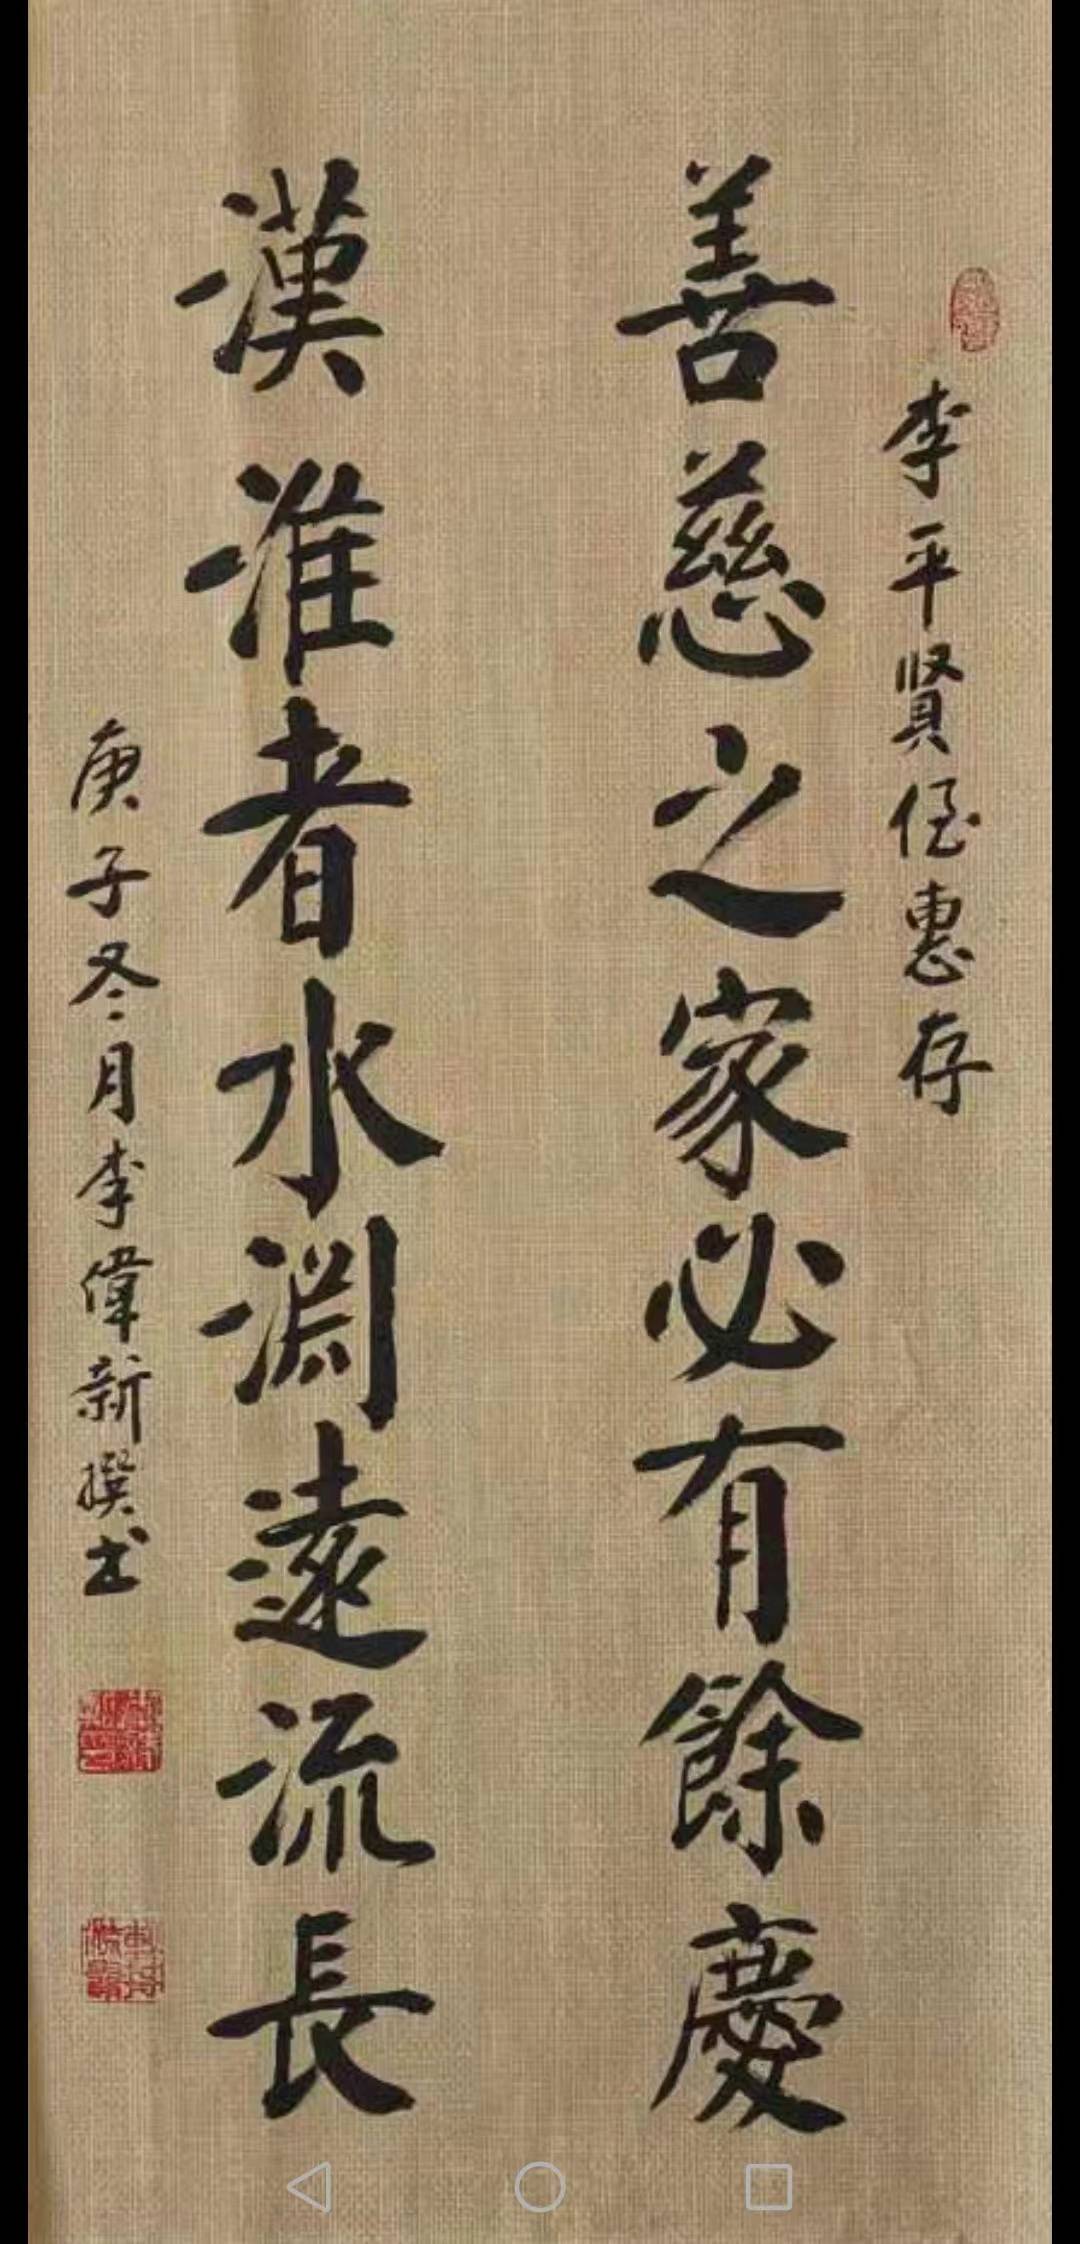 李平贤侄惠存
善慈之家必有餘慶
漢淮者水淵遠流長
庚子冬月李偉新撰书